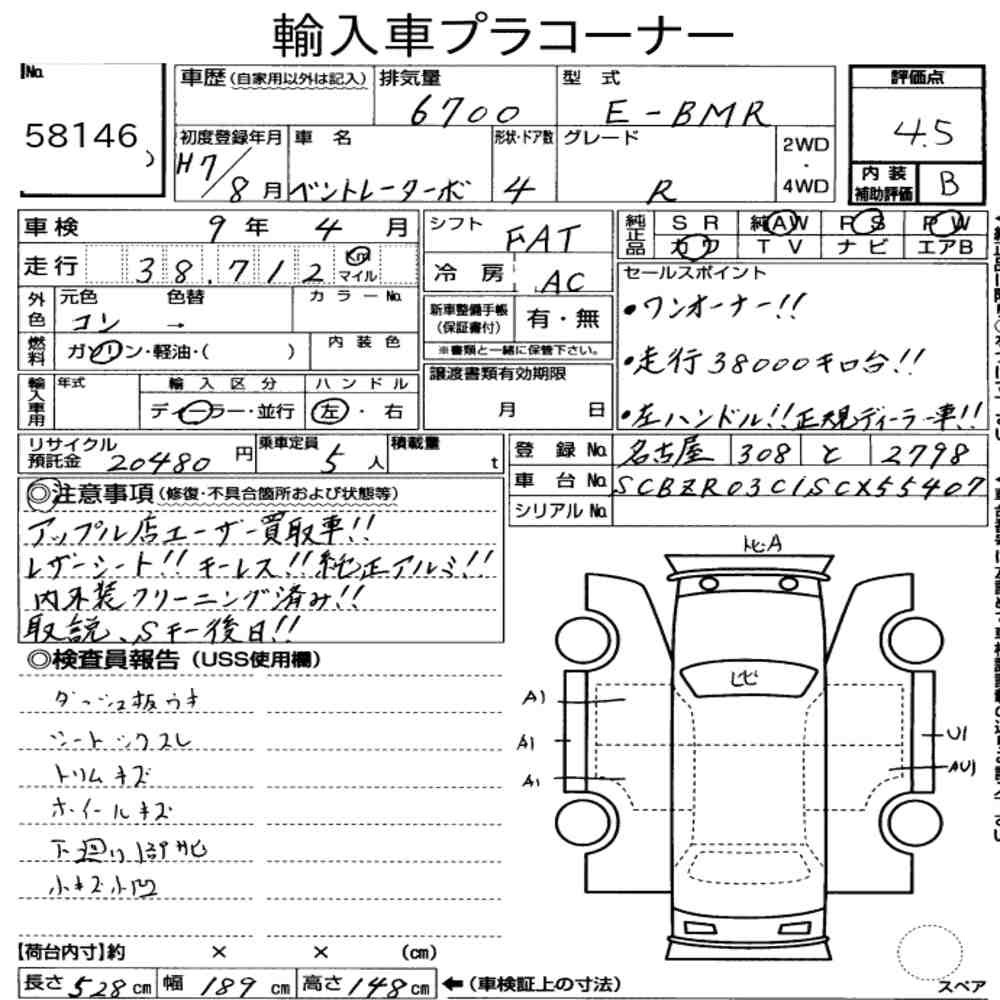 輸入車プラコーナー
No. 58146
車歴(自家用以外は記入) 排気量 6700 型式 E-BMR 評価点 4.5
初度登録年月 H7/8月 車名 ベントレーターボ 形状・ドア数 4 グレード R 2WD・4WD 内装補助評価 B
車検 9年4月
走行 38,712 Km マイル
外色 元色 コン 色替 → カラーNo.
燃料 ガソリン・軽油・( ) 内装色
輸入車用 年式 輸入区分 ディーラー・並行 ハンドル 左・右
リサイクル預託金 20480円 乗車定員 5人 積載量 t
シフト FAT
冷房 AC
新車整備手帳(保証書付) 有・無
※書類と一緒に保管下さい。
譲渡書類有効期限
月 日
純正品 SR 純AW PS PW
カワ TV ナビ エアB
セールスポイント
・ワンオーナー!!
・走行38000キロ台!!
・左ハンドル!!正規ディーラー車!!
登録No. 名古屋 308 と 2798
車台No. SCBZR03C1SCX55407
シリアルNo.
◎注意事項(修復・不具合箇所および状態等)
アップル店ユーザー買取車!!
レザーシート!!キーレス!!純正アルミ!!
内外装クリーニング済み!!
取説、Sキー後日!!
◎検査員報告(USS使用欄)
ダッシュ板ウキ
シートシワスレ
トリムキズ
ホイールキズ
下廻り部サビ
小キズ小凹
ヒA
ヒ
A1
A1
A1
U1
AU1
【荷台内寸】約 × × (cm)
長さ 528cm 幅 189cm 高さ 148cm ←(車検証上の寸法)
スペア